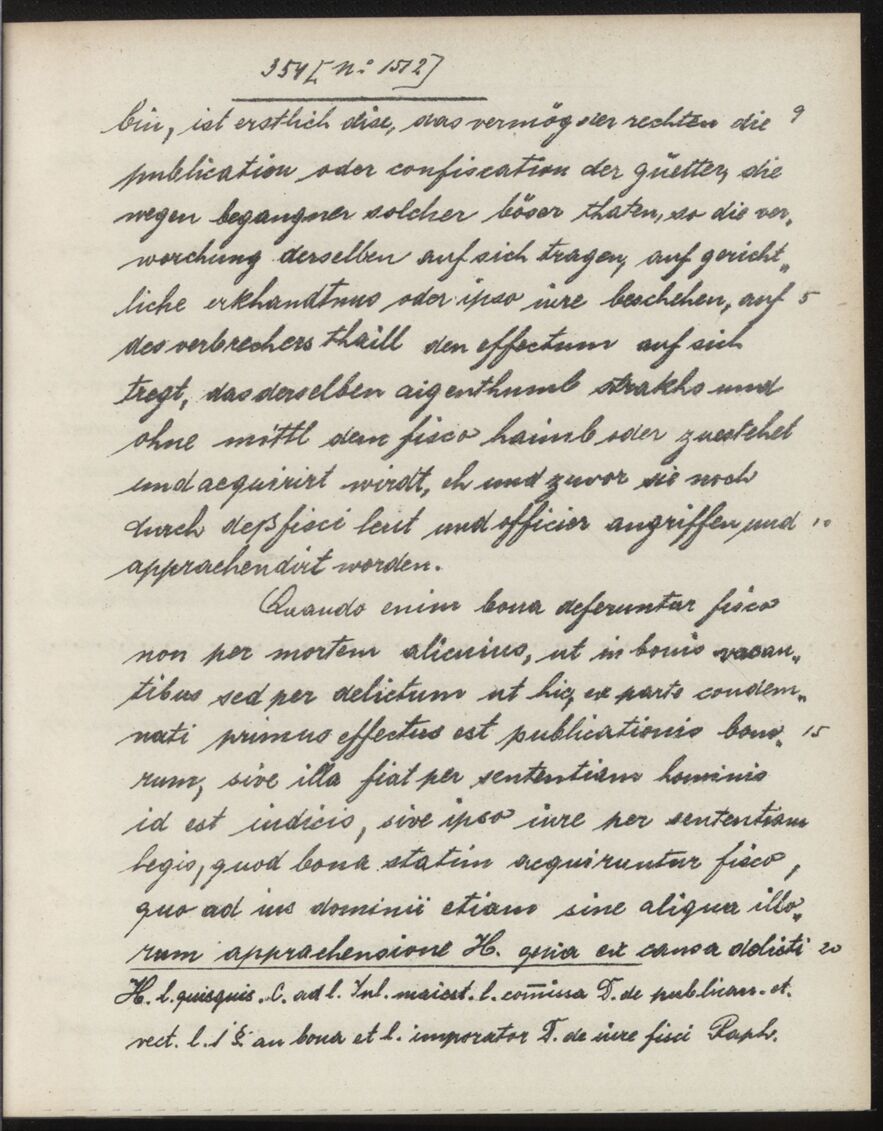 354 [N: 1512]
bin, ist erstlich dise, das vermög der rechten die 9
publication oder confiscation der güetter, die
wegen begangner solcher böser thaten, so die ver„
worchung derselben auf sich tragen, auf gericht„
liche erkhandtnus oder ipso iure beschehen, auf 5
des verbrechers thaill den effectum auf sich
tregt, das derselben aigenthumb strakhs und
ohne mittl dem fisco haimb oder zuestehet
und acquirirt wirdt, eh und zuvor sie noch
durch deß fisci leut und officier angriffen und 10
apprachendirt worden.
Quando enim bona deferuntur fisco
non per mortem alicuius, ut in bonis vacan„
tibus sed per delictum ut hic, ex parte condem„
nati primus effectus est publicationis bono„ 15
rum, sive illa fiat per sententiam hominis
id est iudicis, sive ipso iure per sententiam
legis, quod bona statim acquiruntur fisco,
quo ad ius dominii etiam sine aliqua illo„
rum apprachensione H. quia ex causa delicti 20
H. l. quisquis. C. ad l. Iul. maiest. l. com̄issa D. de publican. et.
vect. l. 1 § an bona et l. imporator D. de iure fisci Raph.